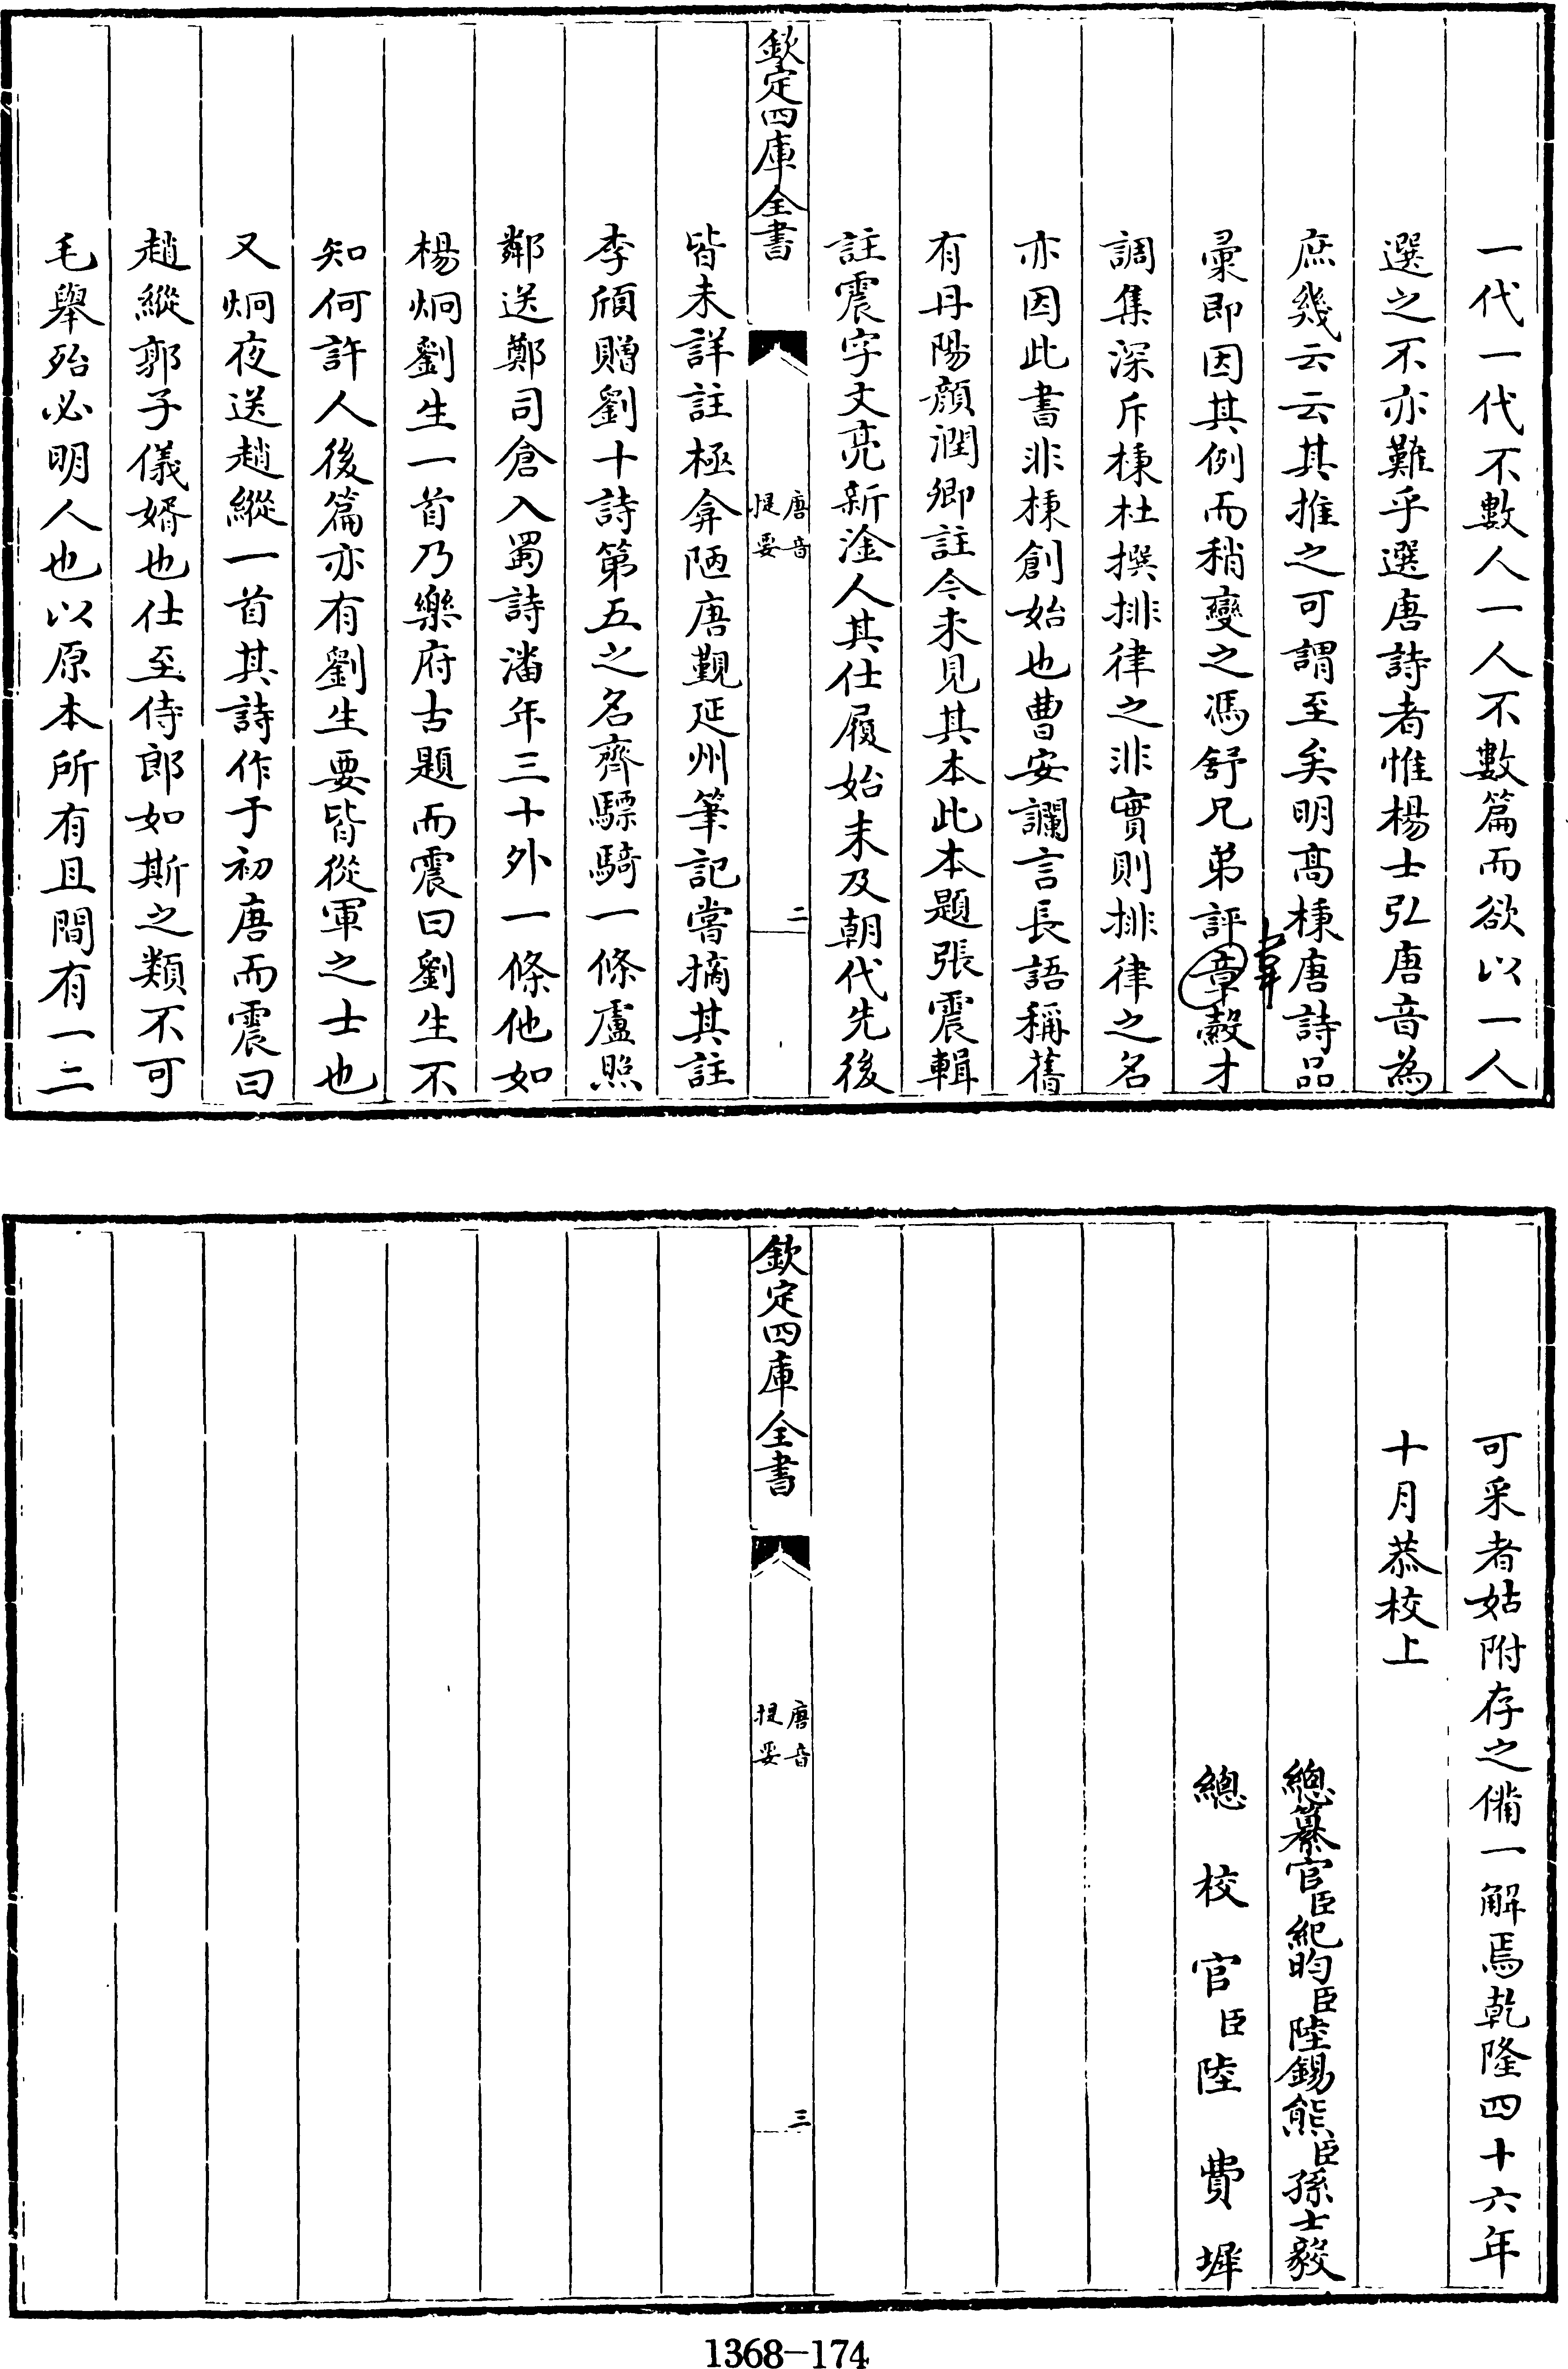 一代一代不數人一人不數篇而欲以一人
選之不亦難乎選唐詩者惟楊士弘唐音為
庶幾云云其推之可謂至矣明高棅唐詩品
彙即因其例而稍變之馮舒兄弟評章縠才
韋
調集深斥棅杜撰排律之非實則排律之名
亦因此書非棅創始也曹安讕言長語稱舊
有丹陽顔潤卿註今未見其本此本題張震輯
註震字文亮新淦人其仕履始末及朝代先後
欽定四庫全書
唐音
提要
二
皆未詳註極弇陋唐覲延州筆記嘗摘其註
李頎贈劉十詩第五之名齊驃騎一條盧照
鄰送鄭司倉入蜀詩潘年三十外一條他如
楊烱劉生一首乃樂府古題而震曰劉生不
知何許人後篇亦有劉生要皆從軍之士也
又烱夜送趙縱一首其詩作于初唐而震曰
趙縱郭子儀婿也仕至侍郎如斯之類不可
毛舉殆必明人也以原本所有且間有一二
可采者姑附存之備一解焉乾隆四十六年
十月恭校上
總纂官臣紀昀臣陸錫熊臣孫士毅
總校官臣陸費墀
欽定四庫全書
唐音
提要
三
1368-174